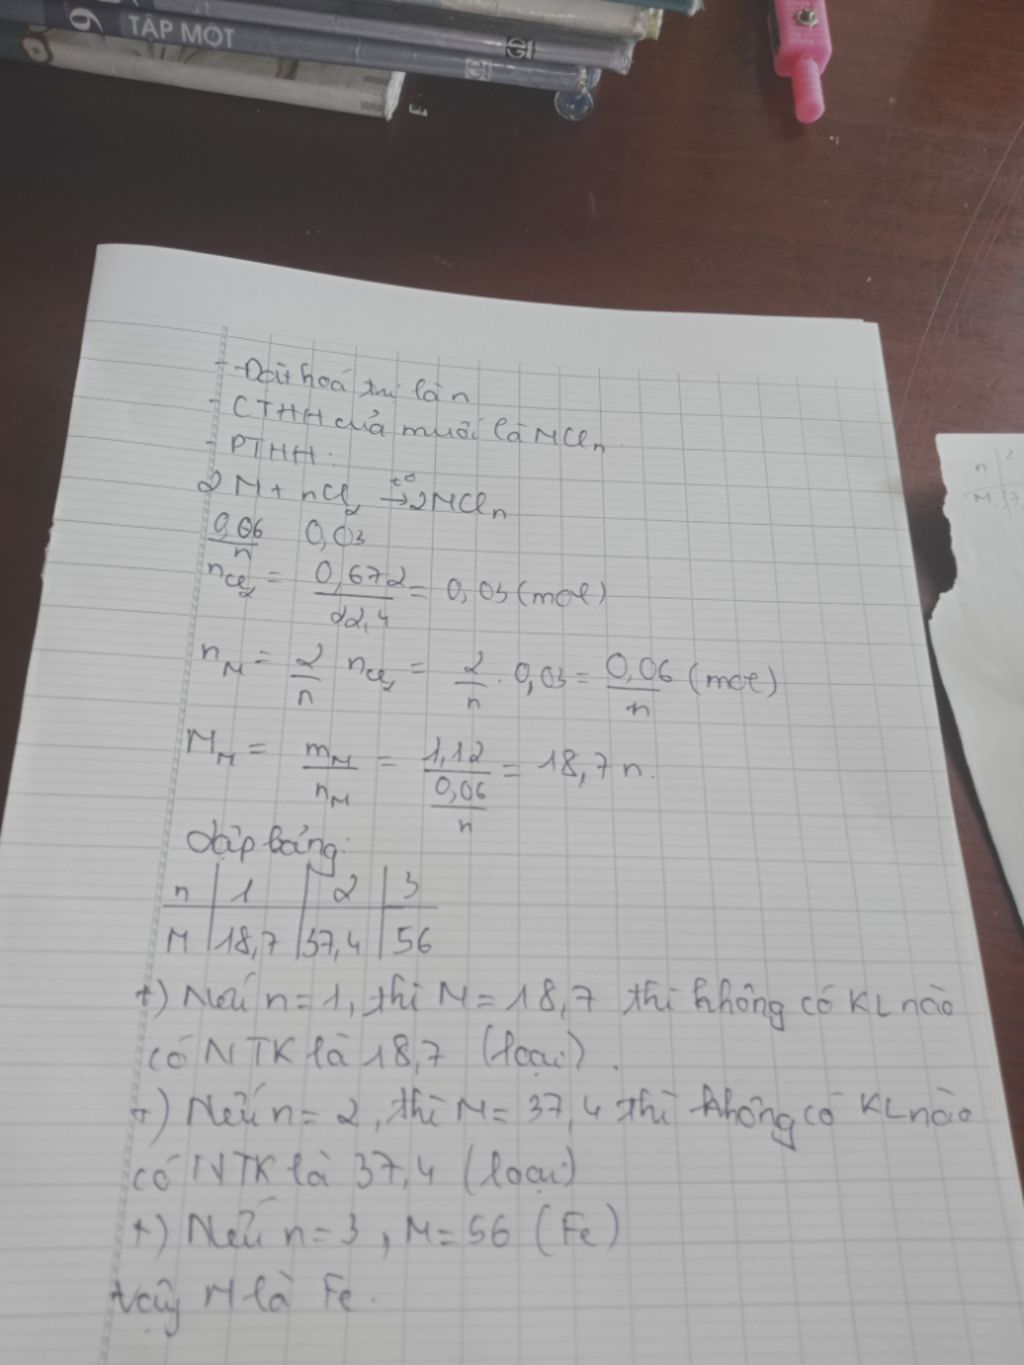 6 TẬP MỘT
- Đặt hoá trị là n
- CTHH của muối là MCln.
- PTHH:
2M + nCl2 t° → 2MCln
0,06/n 0,03
nCl2 = 0,672/22,4 = 0,03 (mol)
nM = 2/n nCl2 = 2/n . 0,03 = 0,06/n (mol)
MM = mM/nM = 1,12/(0,06/n) = 18,7 n.
Lập bảng:
n | 1 | 2 | 3
M | 18,7 | 37,4 | 56
+) Nếu n = 1, thì M = 18,7 thì không có KL nào
có NTK là 18,7 (loại).
+) Nếu n = 2, thì M = 37,4 thì không có KL nào
có NTK là 37,4 (loại)
+) Nếu n = 3, M = 56 (Fe)
Vậy M là Fe.
n | 2
M